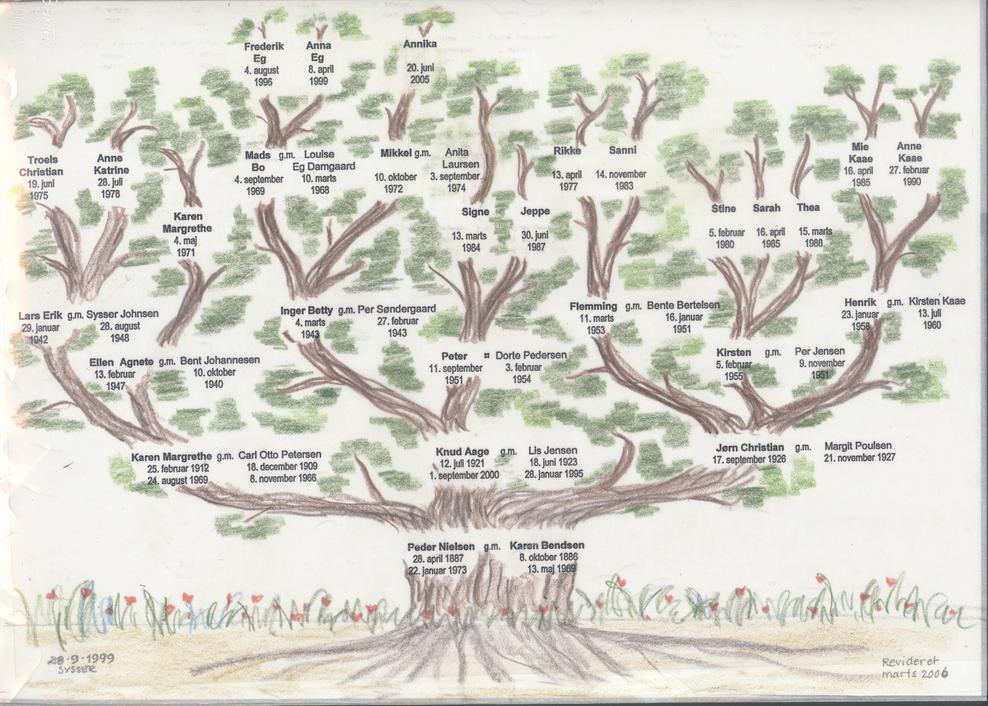 Frederik
Eg
4. august
1996
Anna
Eg
8. april
1999
Annika
20. juni
2005
Troels
Christian
19. juni
1975
Anne
Katrine
28. juli
1978
Karen
Margrethe
4. maj
1971
Mads g.m. Louise
Bo Eg Damgaard
4. september 10. marts
1969 1968
Mikkel g.m. Anita
Laursen
10. oktober 3. september
1972 1974
Signe
13. marts
1984
Jeppe
30. juni
1987
Rikke
13. april
1977
Sanni
14. november
1983
Stine
5. februar
1980
Sarah
16. april
1985
Thea
15. marts
1988
Mie
Kaae
16. april
1985
Anne
Kaae
27. februar
1990
Lars Erik g.m. Sysser Johnsen
29. januar 28. august
1942 1948
Ellen Agnete g.m. Bent Johannesen
13. februar 10. oktober
1947 1940
Inger Betty g.m. Per Søndergaard
4. marts 27. februar
1943 1943
Peter ¤ Dorte Pedersen
11. september 3. februar
1951 1954
Flemming g.m. Bente Bertelsen
11. marts 16. januar
1953 1951
Kirsten g.m. Per Jensen
5. februar 9. november
1955 1951
Henrik g.m. Kirsten Kaae
23. januar 13. juli
1958 1960
Karen Margrethe g.m. Carl Otto Petersen
25. februar 1912 18. december 1909
24. august 1969 8. november 1966
Knud Aage g.m. Lis Jensen
12. juli 1921 18. juni 1923
1. september 2000 28. januar 1995
Jørn Christian g.m. Margit Poulsen
17. september 1926 21. november 1927
Peder Nielsen g.m. Karen Bendsen
28. april 1887 8. oktober 1886
22. januar 1973 13. maj 1969
28·9·1999
SYSSER
Revideret
marts 2006